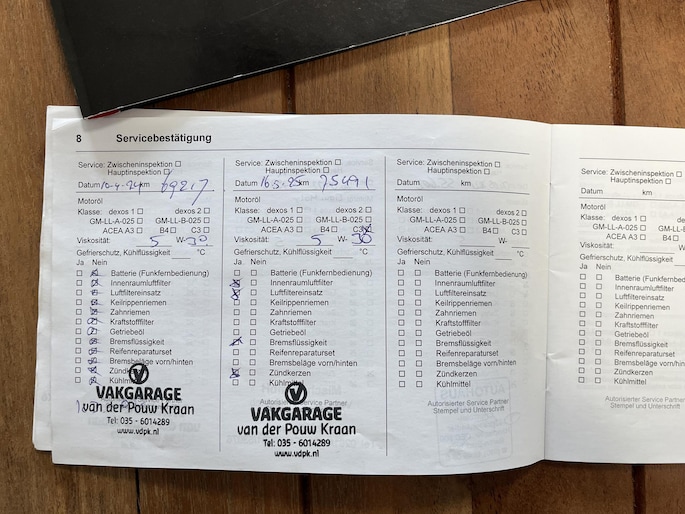 8 Servicebestätigung
Service: Zwischeninspektion
Hauptinspektion
Datum 10-4-24 km 69217
Motoröl
Klasse: dexos 1 dexos 2
GM-LL-A-025 GM-LL-B-025
ACEA A3 B4 C3
Viskosität: 5 W- 30
Gefrierschutz, Kühlflüssigkeit °C
Ja Nein
Batterie (Funkfernbedienung)
Innenraumluftfilter
Luftfiltereinsatz
Keilrippenriemen
Zahnriemen
Kraftstofffilter
Getriebeöl
Bremsflüssigkeit
Reifenreparaturset
Bremsbeläge vorn/hinten
Zündkerzen
Kühlmittel
VAKGARAGE
van der Pouw Kraan
Tel: 035 - 6014289
www.vdpk.nl
Service: Zwischeninspektion
Hauptinspektion
Datum 16-5-25 km 75491
Motoröl
Klasse: dexos 1 dexos 2
GM-LL-A-025 GM-LL-B-025
ACEA A3 B4 C3
Viskosität: 5 W- 30
Gefrierschutz, Kühlflüssigkeit °C
Ja Nein
Batterie (Funkfernbedienung)
Innenraumluftfilter
Luftfiltereinsatz
Keilrippenriemen
Zahnriemen
Kraftstofffilter
Getriebeöl
Bremsflüssigkeit
Reifenreparaturset
Bremsbeläge vorn/hinten
Zündkerzen
Kühlmittel
Autorisierter Service Partner
VAKGARAGE
van der Pouw Kraan
Tel: 035 - 6014289
www.vdpk.nl
Service: Zwischeninspektion
Hauptinspektion
Datum km
Motoröl
Klasse: dexos 1 dexos 2
GM-LL-A-025 GM-LL-B-025
ACEA A3 B4 C3
Viskosität: W-
Gefrierschutz, Kühlflüssigkeit °C
Ja Nein
Batterie (Funkfernbedienung)
Innenraumluftfilter
Luftfiltereinsatz
Keilrippenriemen
Zahnriemen
Kraftstofffilter
Getriebeöl
Bremsflüssigkeit
Reifenreparaturset
Bremsbeläge vorn/hinten
Zündkerzen
Kühlmittel
Autorisierter Service Partner
Stempel und Unterschrift
Service: Zwischeninspektion
Hauptinspektion
Datum km
Motoröl
Klasse: dexos 1
GM-LL-A-025
ACEA A3 B4
Viskosität: W-
Gefrierschutz, Kühlflüssigkeit
Ja Nein
Batterie (Funkfernbedienung)
Innenraumluftfilter
Luftfiltereinsatz
Keilrippenriemen
Zahnriemen
Kraftstofffilter
Getriebeöl
Bremsflüssigkeit
Reifenreparaturset
Bremsbeläge vorn/hinten
Zündkerzen
Kühlmittel
Autorisierter Service Partner
Stempel und Unterschrift